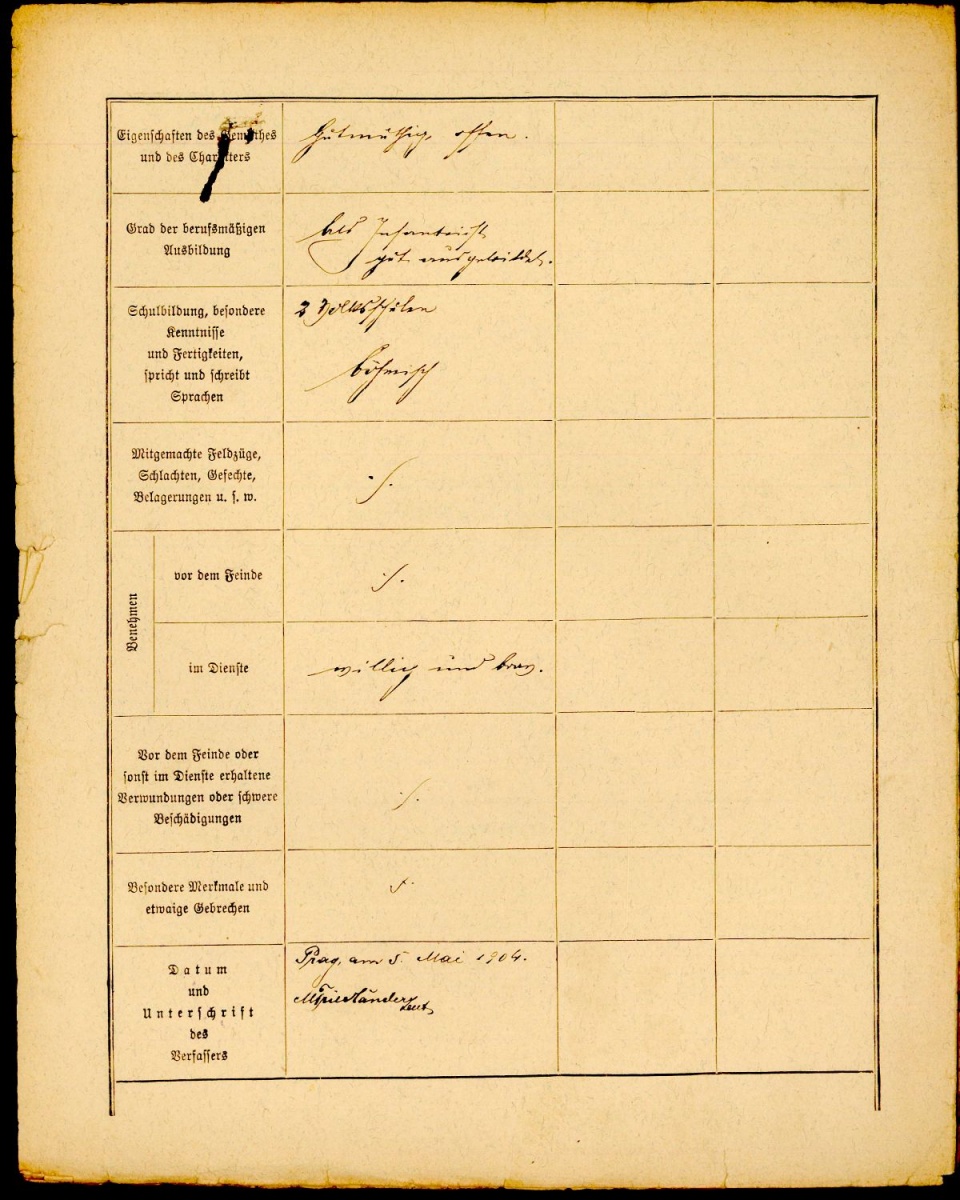 Eigenschaften des Gemüthes
und des Charakters
gutmüthig, offen.
Grad der berufsmäßigen
Ausbildung
Als Infanterist
gut ausgebildet.
Schulbildung, besondere
Kenntnisse
und Fertigkeiten,
spricht und schreibt
Sprachen
2 Volksschulen
böhmisch
Mitgemachte Feldzüge,
Schlachten, Gefechte,
Belagerungen u. s. w.
·/.
Benehmen
vor dem Feinde
·/.
im Dienste
willig und brav.
Vor dem Feinde oder
sonst im Dienste erhaltene
Verwundungen oder schwere
Beschädigungen
·/.
Besondere Merkmale und
etwaige Gebrechen
·/.
Datum
und
Unterschrift
des
Verfassers
Prag, am 5. Mai 1904.